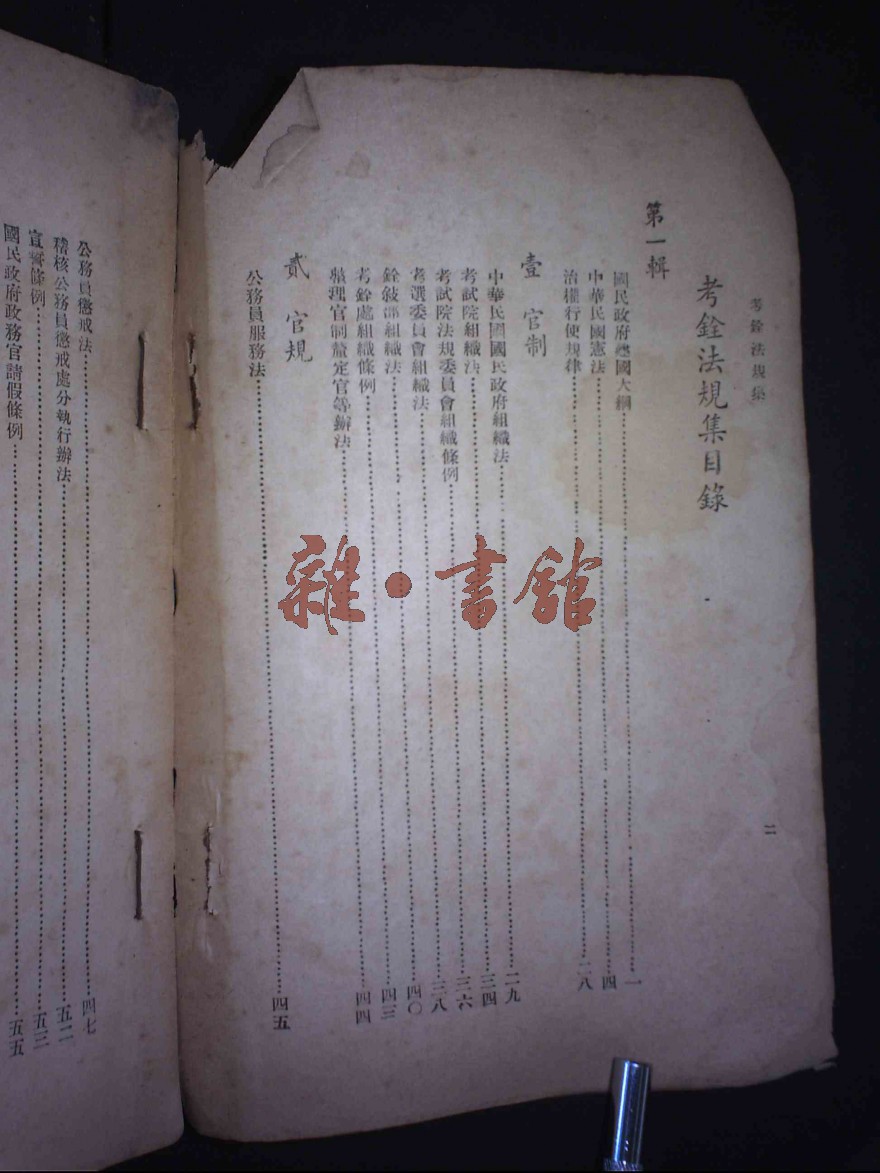 考銓法規集
二
考銓法規集目錄
第一輯
國民政府建國大綱……一
中華民國憲法……四
治權行使規律……二八
壹 官制
中華民國國民政府組織法……二九
考試院組織法……三四
考試院法規委員會組織條例……三六
考選委員會組織法……三八
銓敍部組織法……四〇
考銓處組織條例……四三
整理官制釐定官等辦法……四四
貳 官規
公務員服務法……四五
公務員懲戒法……四七
稽核公務員懲戒處分執行辦法……五二
宣誓條例……五三
國民政府政務官請假條例……五五
雜·書館